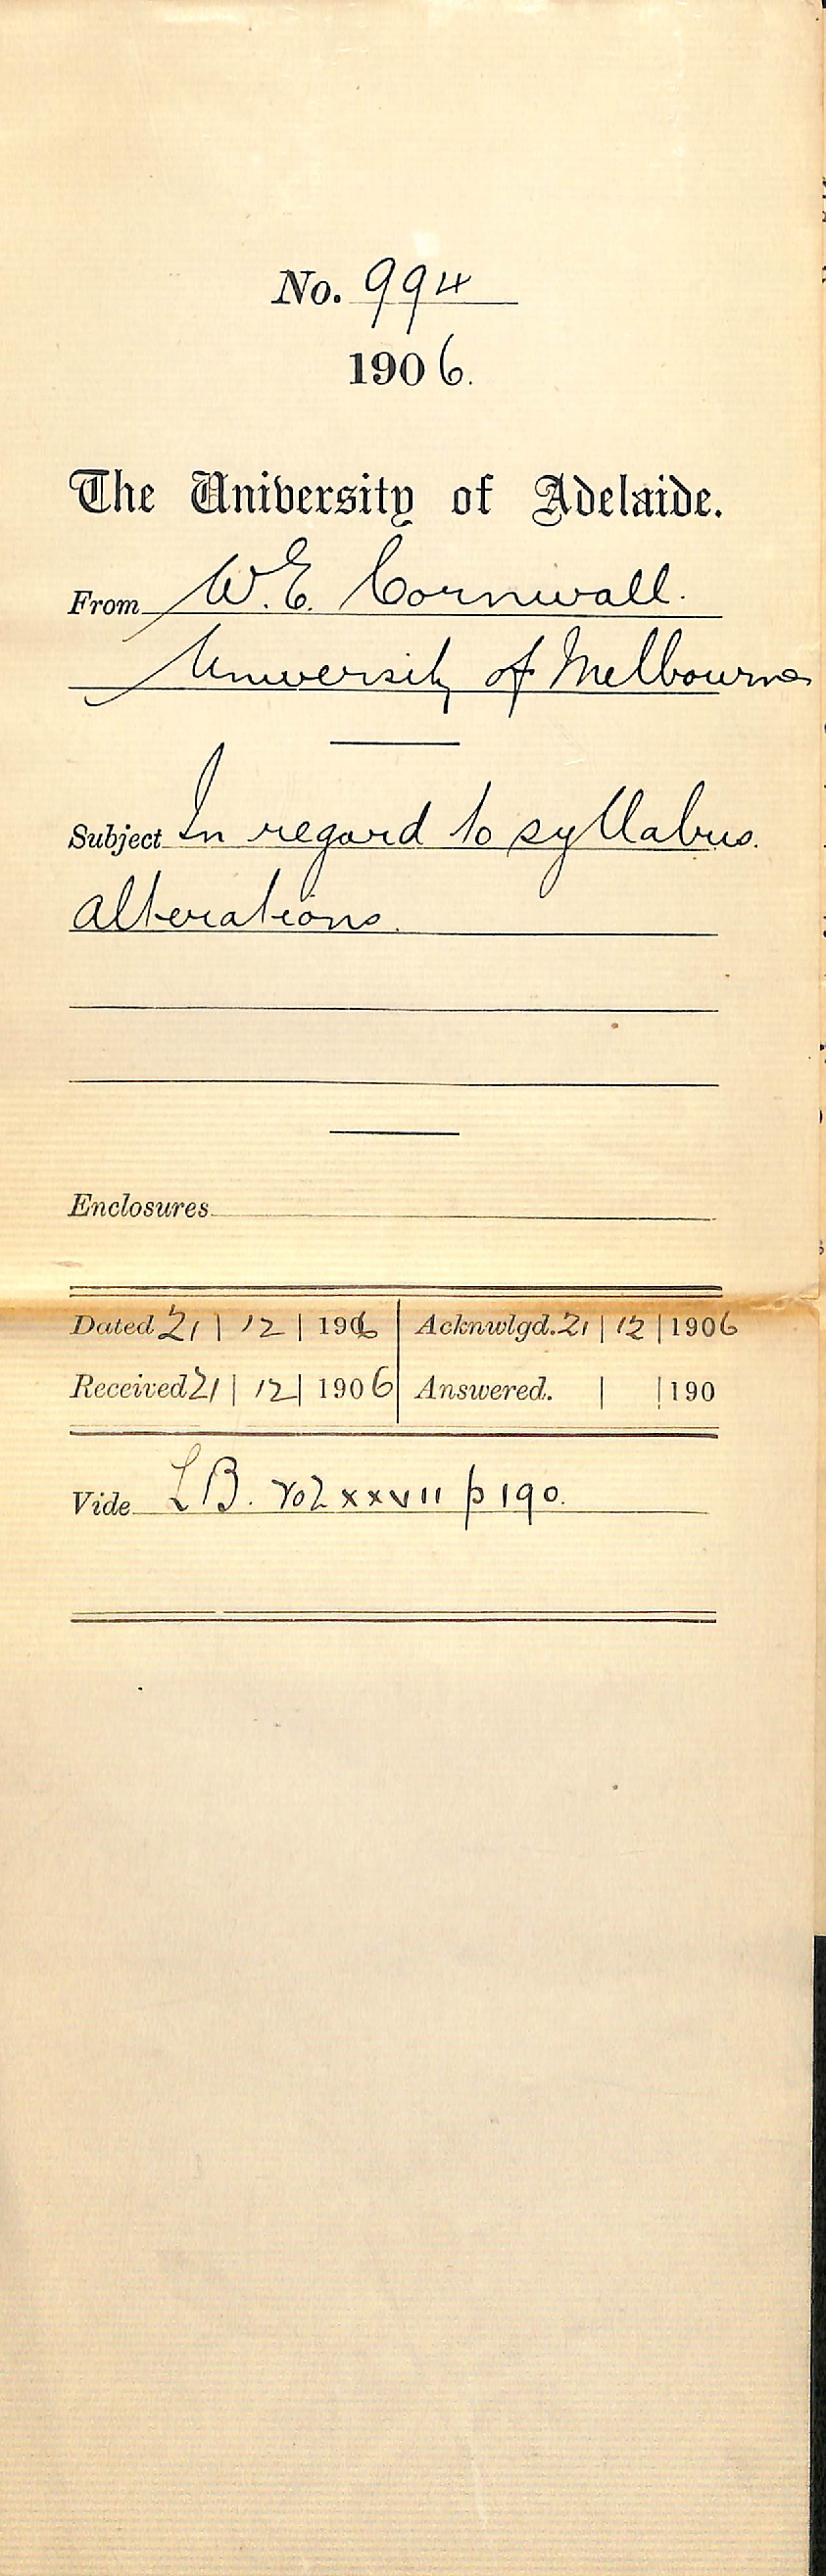 No. 994
1906.
The University of Adelaide.
From W. E. Cornwall.
University of Melbourne
Subject In regard to syllabus
alterations.
Enclosures
Dated 21 | 12 | 1906 Acknwlgd. 21 | 12 | 1906
Received 21 | 12 | 1906 Answered. | | 190
Vide LB. Vol xxvii p 190.